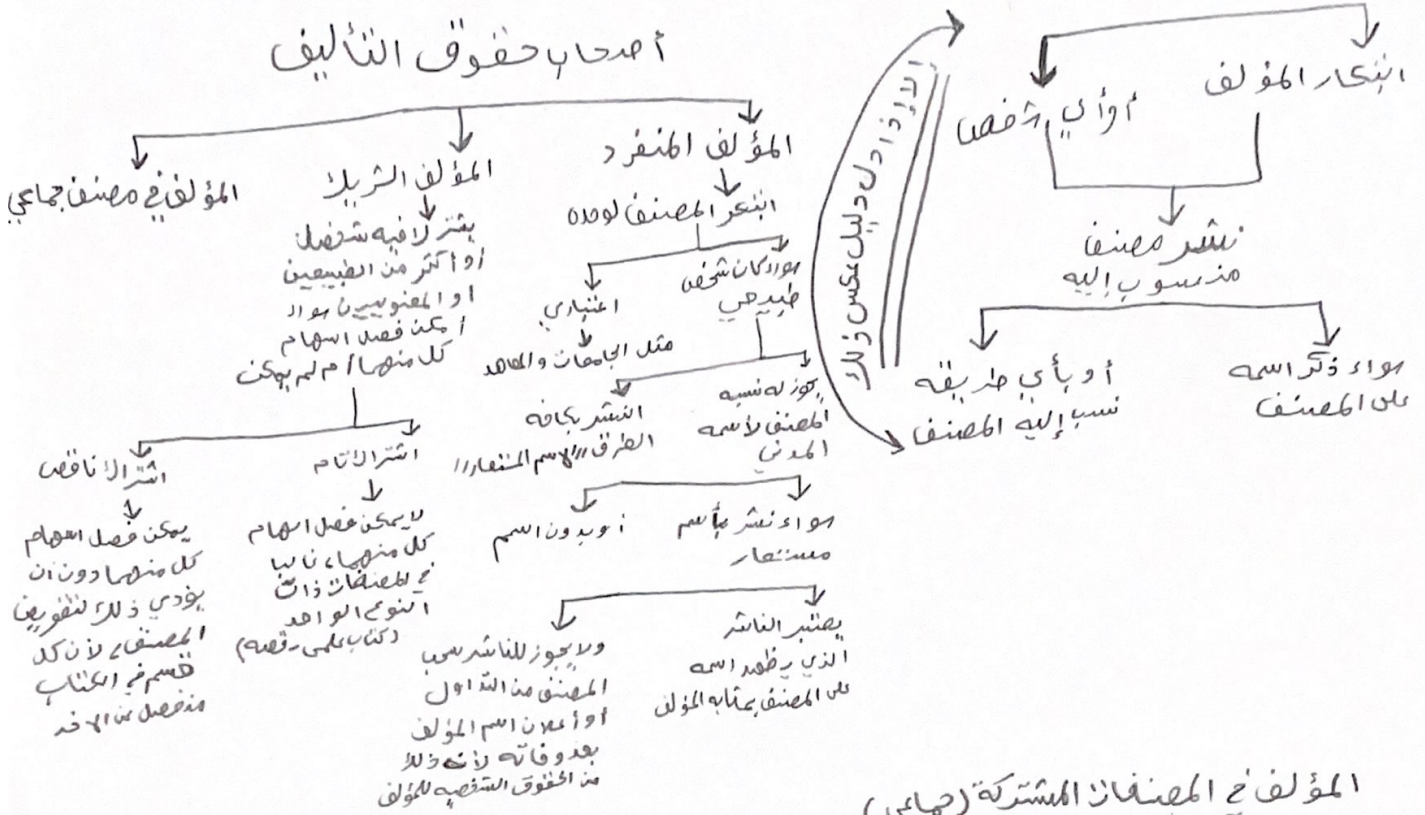 أصحاب حقوق التأليف
ابتكار المؤلف
أو أي شخص
نشر مصنف
منسوب إليه
سواء ذكر اسمه
على المصنف
أو بأي طريقة
نسب إليه المصنف
إلا إذا دل دليل عكس ذلك
المؤلف المنفرد
ابتكر المصنف لوحده
سواء كان شخص
طبيعي
اعتباري
مثل الجامعات والمعاهد
يجوز له نسبه
المصنف لأسمه
المدني
النشر بكافة
الطرق "الاسم المستعار"
سواء نشر بأسم
مستعار
أو بدون اسم
يعتبر الناشر
الذي يظهر اسمه
على المصنف بمثابه المؤلف
ولا يجوز للناشر سحب
المصنف من التداول
أو أعلان اسم المؤلف
بعد وفاته لأن ذلك
من الحقوق الشخصيه للمؤلف
المؤلف الشريك
يشترك فيه شخصان
أو أكثر من الطبيعين
او المعنويين سواء
أمكن فصل اسهام
كل منهما أم لم يمكن
اشتراك تام
لا يمكن فصل اسهام
كل منهما، غالبا
في المصنفات ذات
النوع الواحد
(كتاب علمي، قصه)
اشتراك ناقص
يمكن فصل اسهام
كل منهما دون ان
يؤدي ذلك لتقويض
المصنف، لأن كل
قسم في الكتاب
منفصل عن الاخر
المؤلف في مصنف جماعي
المؤلف في المصنفات المشتركة (جماعي)